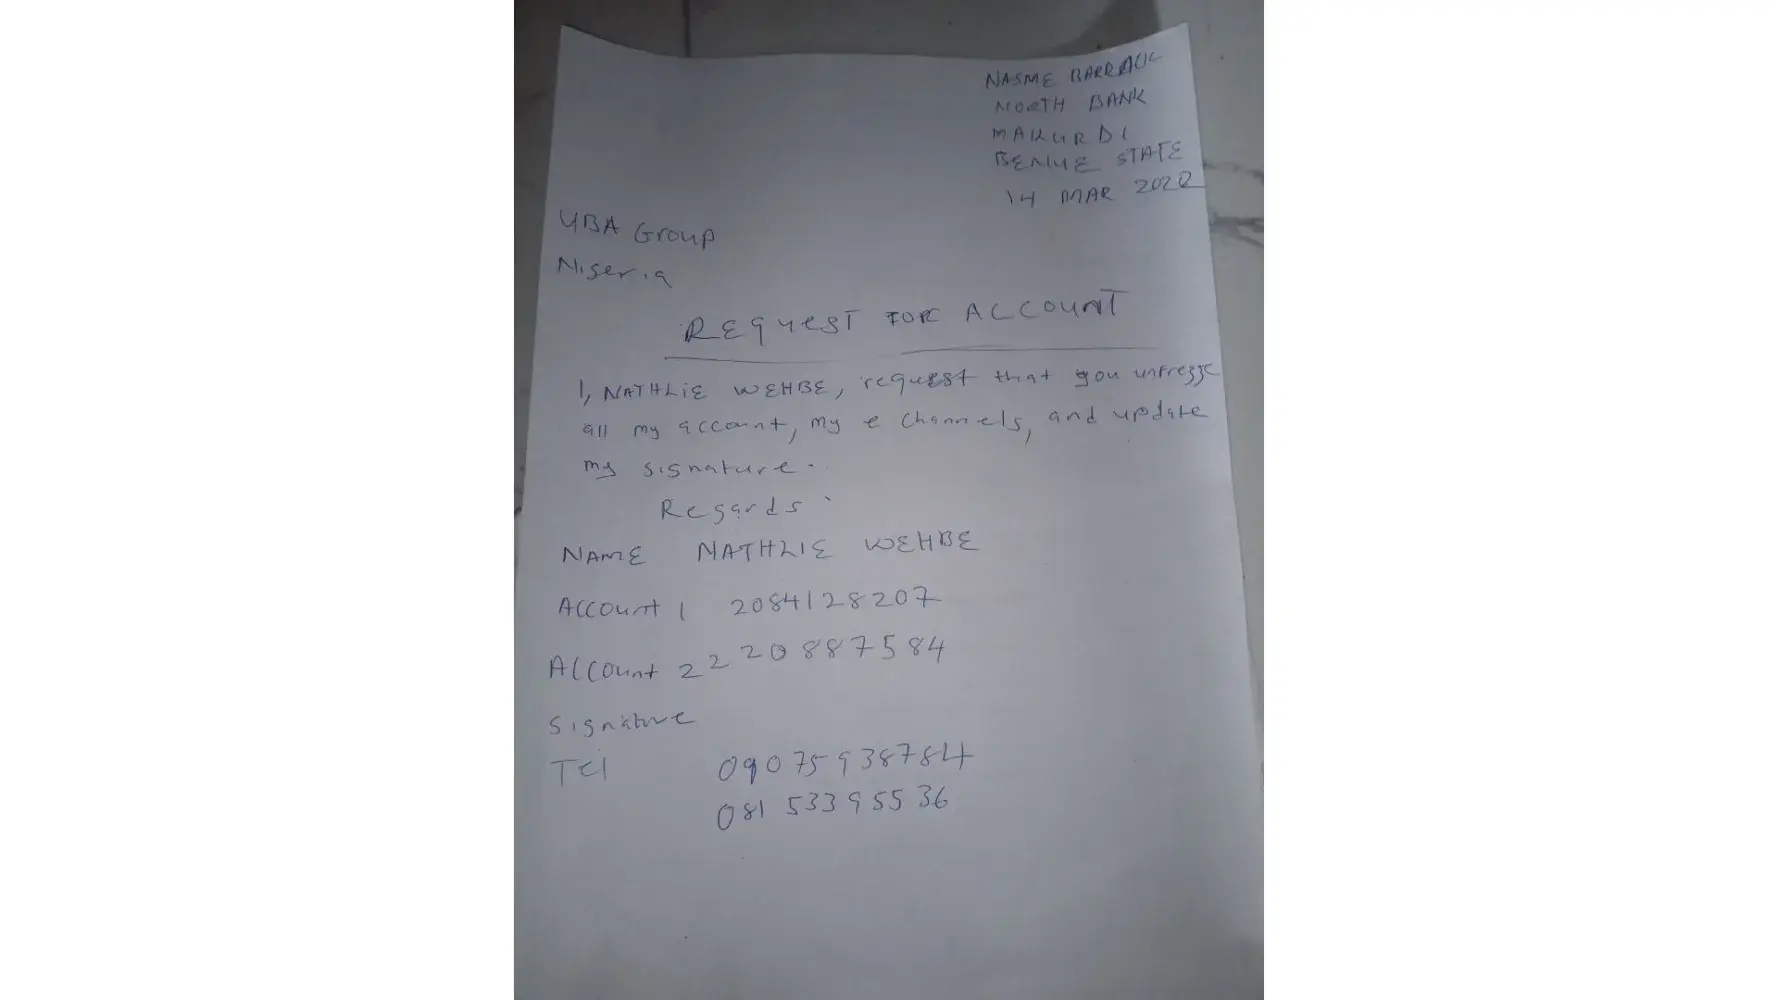 NASME BARRACK
NORTH BANK
MAKURDI
BENUE STATE
14 MAR 2022
UBA Group
Nigeria
REQUEST FOR ACCOUNT
I, NATHLIE WEHBE, request that you unfreeze
all my account, my e channels, and update
my signature.
Regards.
NAME NATHLIE WEHBE
Account 1 2084128207
Account 2 2208887584
Signature
Tel 09075938784
08153395536